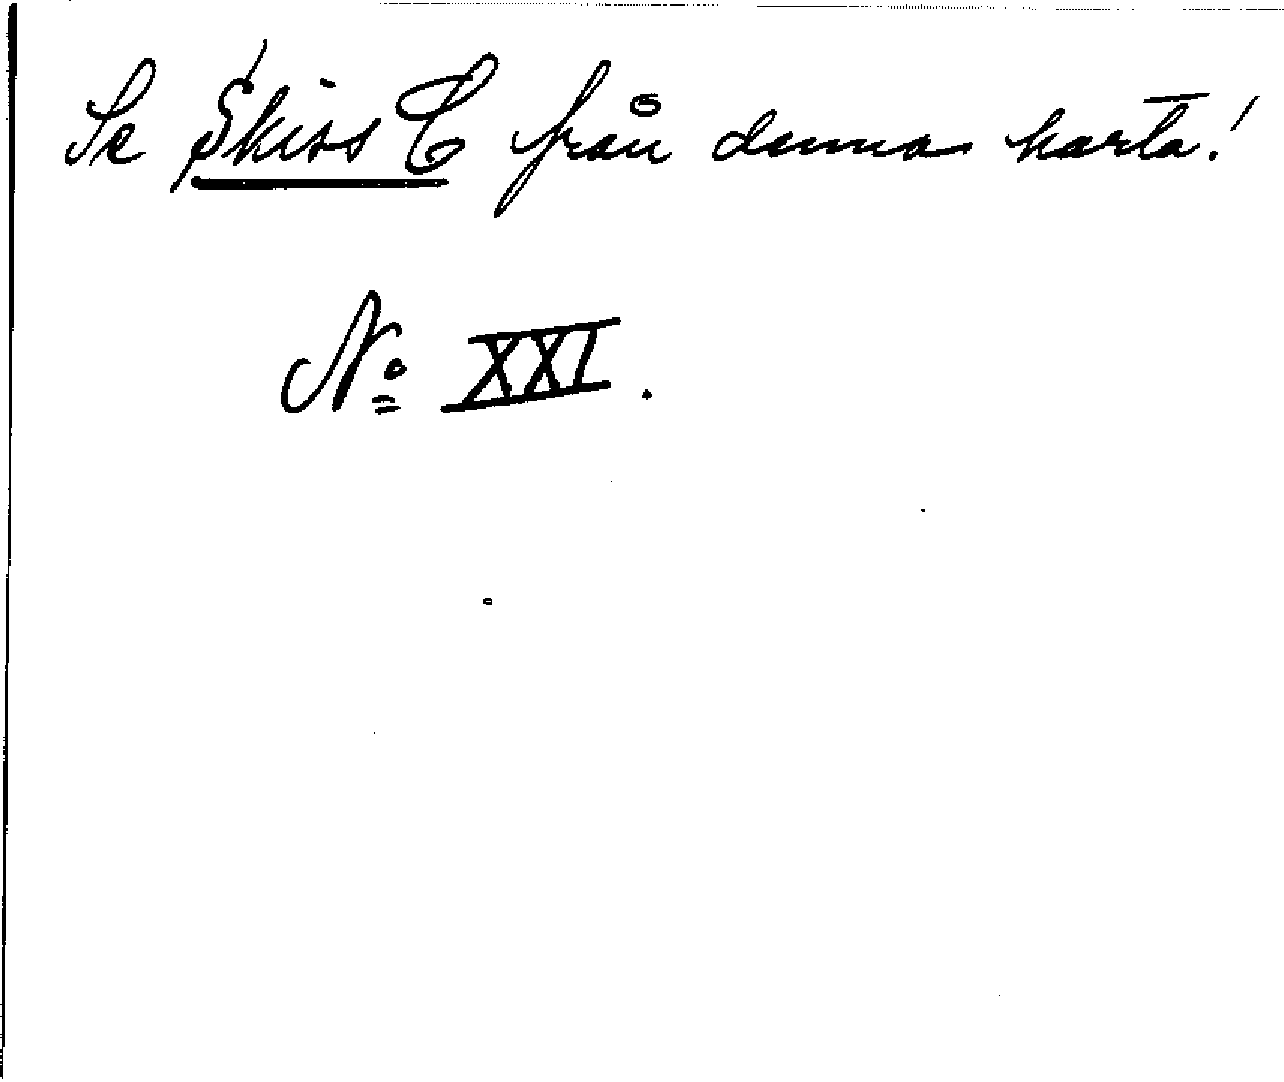 Se Skiss C från denna karta!
No XXI.